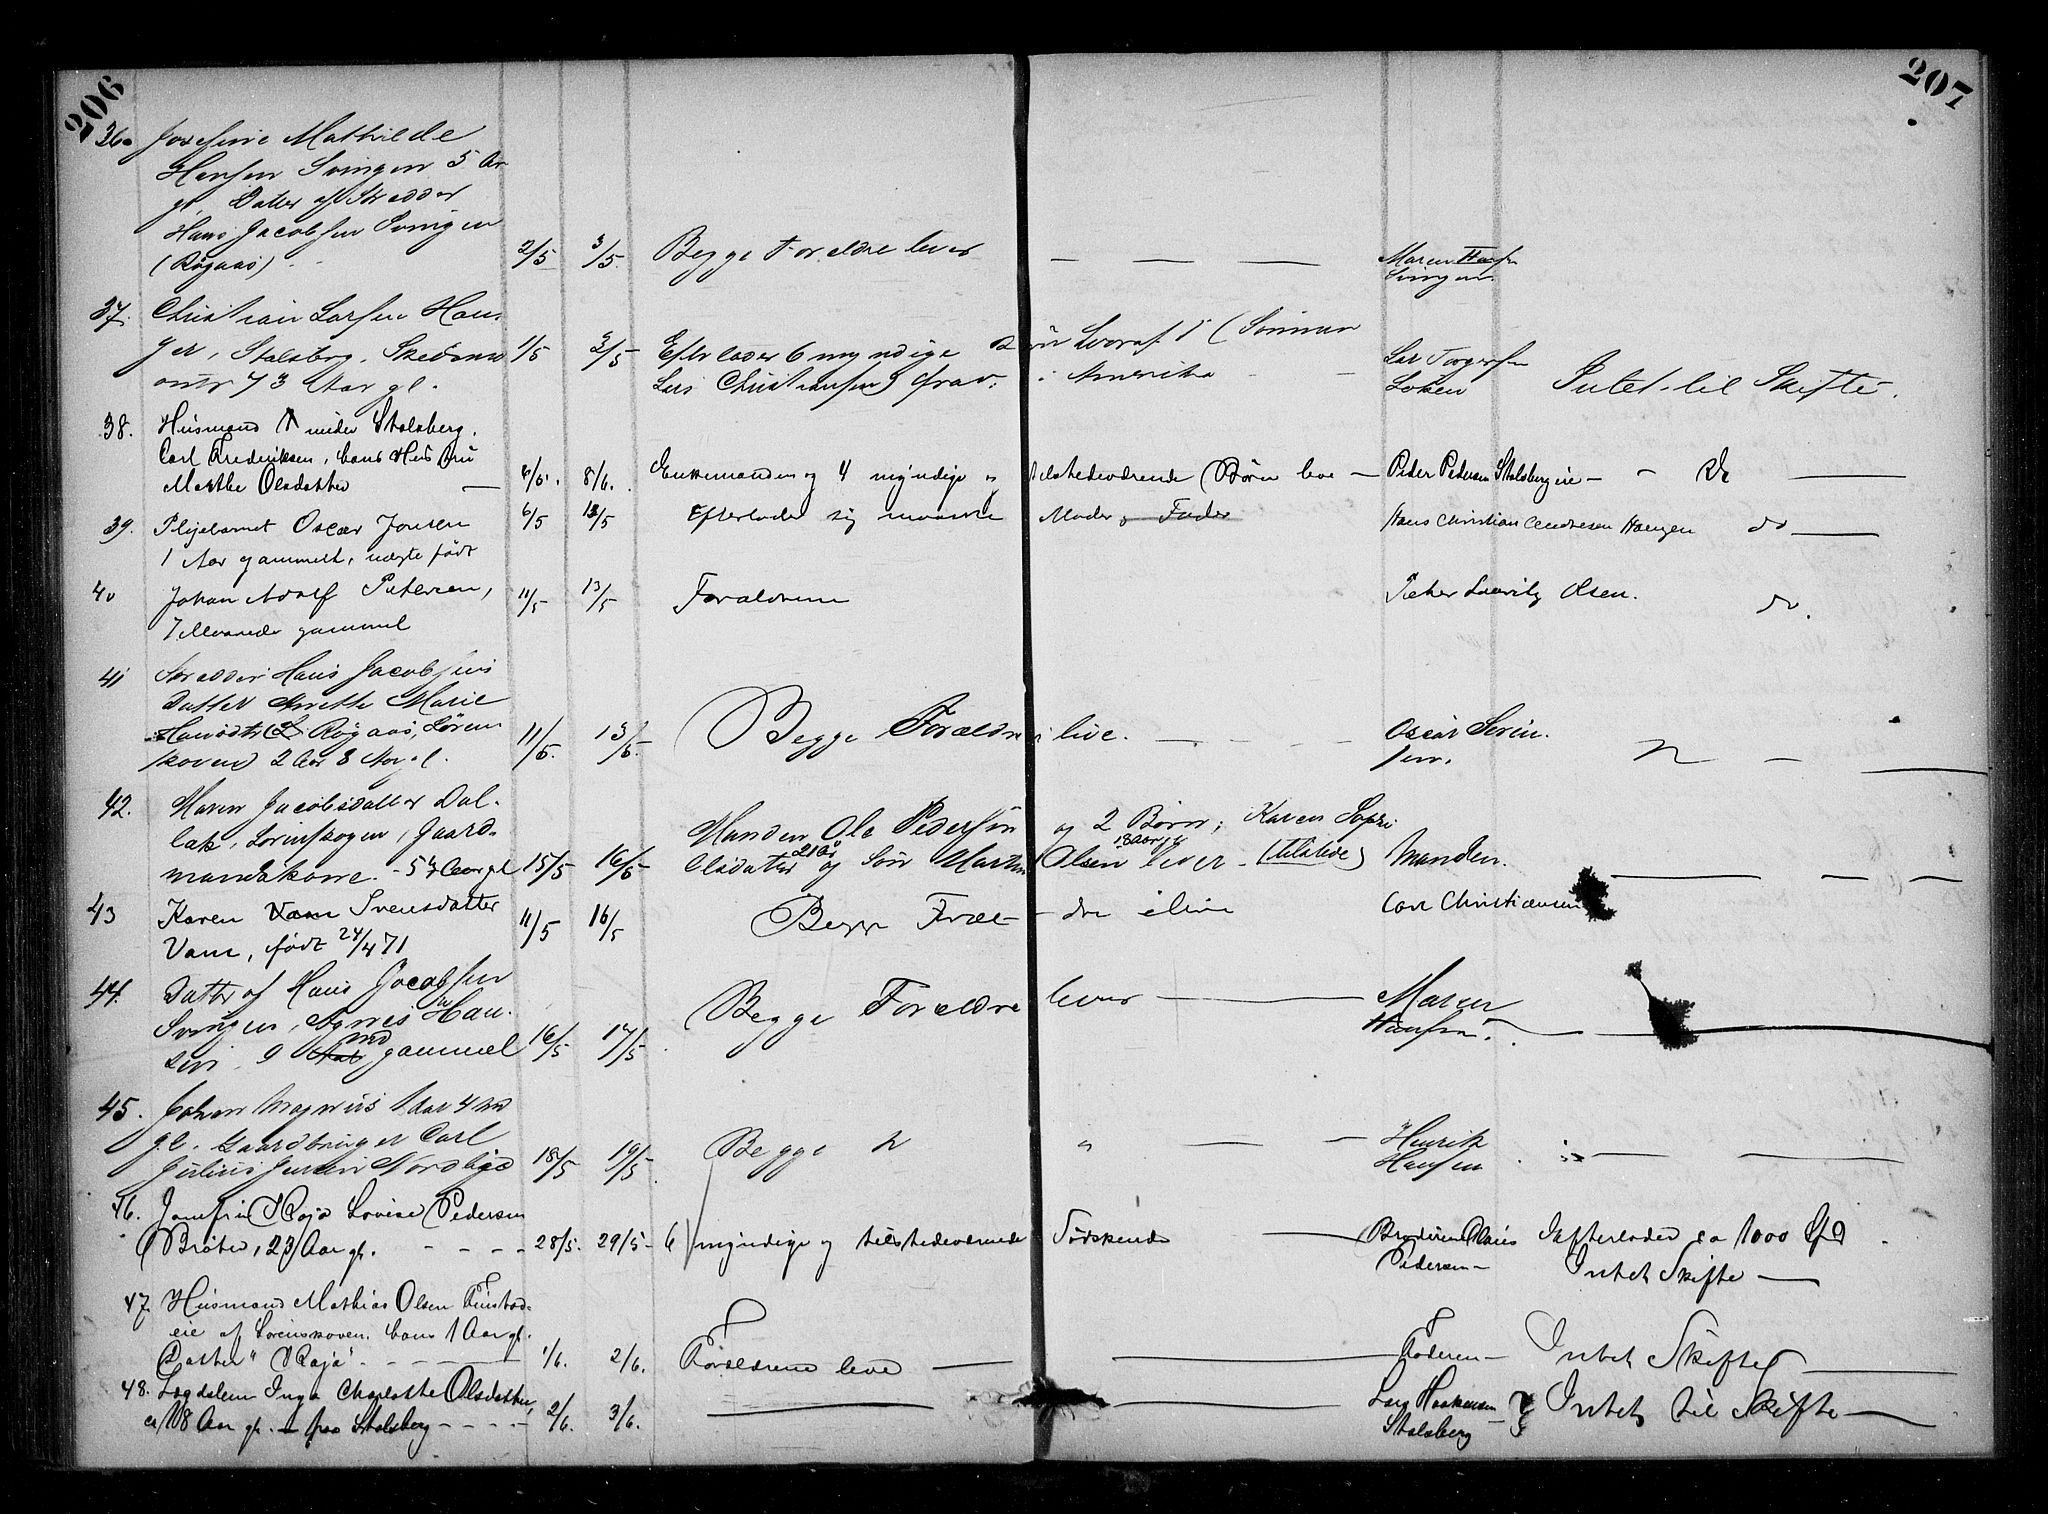 206
207
36. Josefine Mathilde
Hansen Svingen 5 Aar
gl. Datter af Skrædder
Hans Jacobsen Svingen
(Røgaas) 2/5 3/5 Begge Forældre lever — — — Maren Hansen
Svingen
37. Christian Larsen Hau-
ger, Stalsberg, Skedsmo
73 Aar gl. 1/5 3/5 Efterlader 6 myndige Børn hvoraf 1 (Sønnen
Lars Christiansen) fra. i Amerika — Lars Torgersen
Løken Intet til Skifte.
38. Husmand under Stalsberg,
Carl Frederiksen, hans Hustru
Marthe Olsdatter — 6/5. 8/6. Enkemanden og 4 myndige og tilstedeværende Børn leve — Peder Pedersen Stalsbergeie — Do —
39. Plejebarnet Oscar Jonsen
1 Aar gammelt, uægte født 6/5 12/5 Efterlader sig Moder og Fader Hans Christian Andresen Haugen do —
40 Johan Adolf Petersen,
7 Maaneder gammel 11/5 13/5 Forældrene Peter Lauritz Olsen. do.
41 Skrædder Hans Jacobsens
Datter Anette Marie
Hansdtr Røgaas, Løren-
skoven 2 Aar 8 gl. 11/5. 13/5. Begge Forældre i live. — Oscar Søren-
sen. —
42. Maren Jacobsdatter Dal-
bak, Lørenskogen, Gaard-
mandskone. - 54 Aar gl 15/5 16/5 Manden Ole Pedersen og 2 Børn; Karen Sofie
Olsdatter 21 Aar og Søn Martin Olsen 18 Aar gl lever — Manden. —
43 Karen Svensdatter
Vam, født 24/4 71 11/5 16/5 Begge Foræl- dre i live Carl Christiansen
44. Datter af Hans Jacobsen
Svingen, Agnes Han-
sen, 9 Md gammel 16/5 17/5. Begge Forældre lever — Maren
Hansen. —
45. Johan Magnus 1 Aar 4 Md
gl. Gaardbruger Carl
Julius Jensen Nordby 18/5 19/5. Begge " — — Henrik
Hansen . —
46. Jomfru Kaja Lovise Pedersen
Bråten, 23 Aar gl. - - - - 28/5. 29/5 - 6 myndige og tilstedeværende Sødskende — Broderen Olaus Efterlader ca 1000 Spd
Pedersen — Intet Skifte —
47. Husmand Mathias Olsen Finstad-
eie af Lørenskoven, hans 1 Aar gl.
Datter "Kaja" - - - 1/6. 2/6. Forældrene leve — — Faderen — Intet Skifte —
48. Lægdslem Inga Charlotte Olsdatter,
ca 18 Aar gl. — fra Stalsberg - - - - 2/6. 3/6. — — Lars Haakensen
Stalsberg — Intet til Skifte —